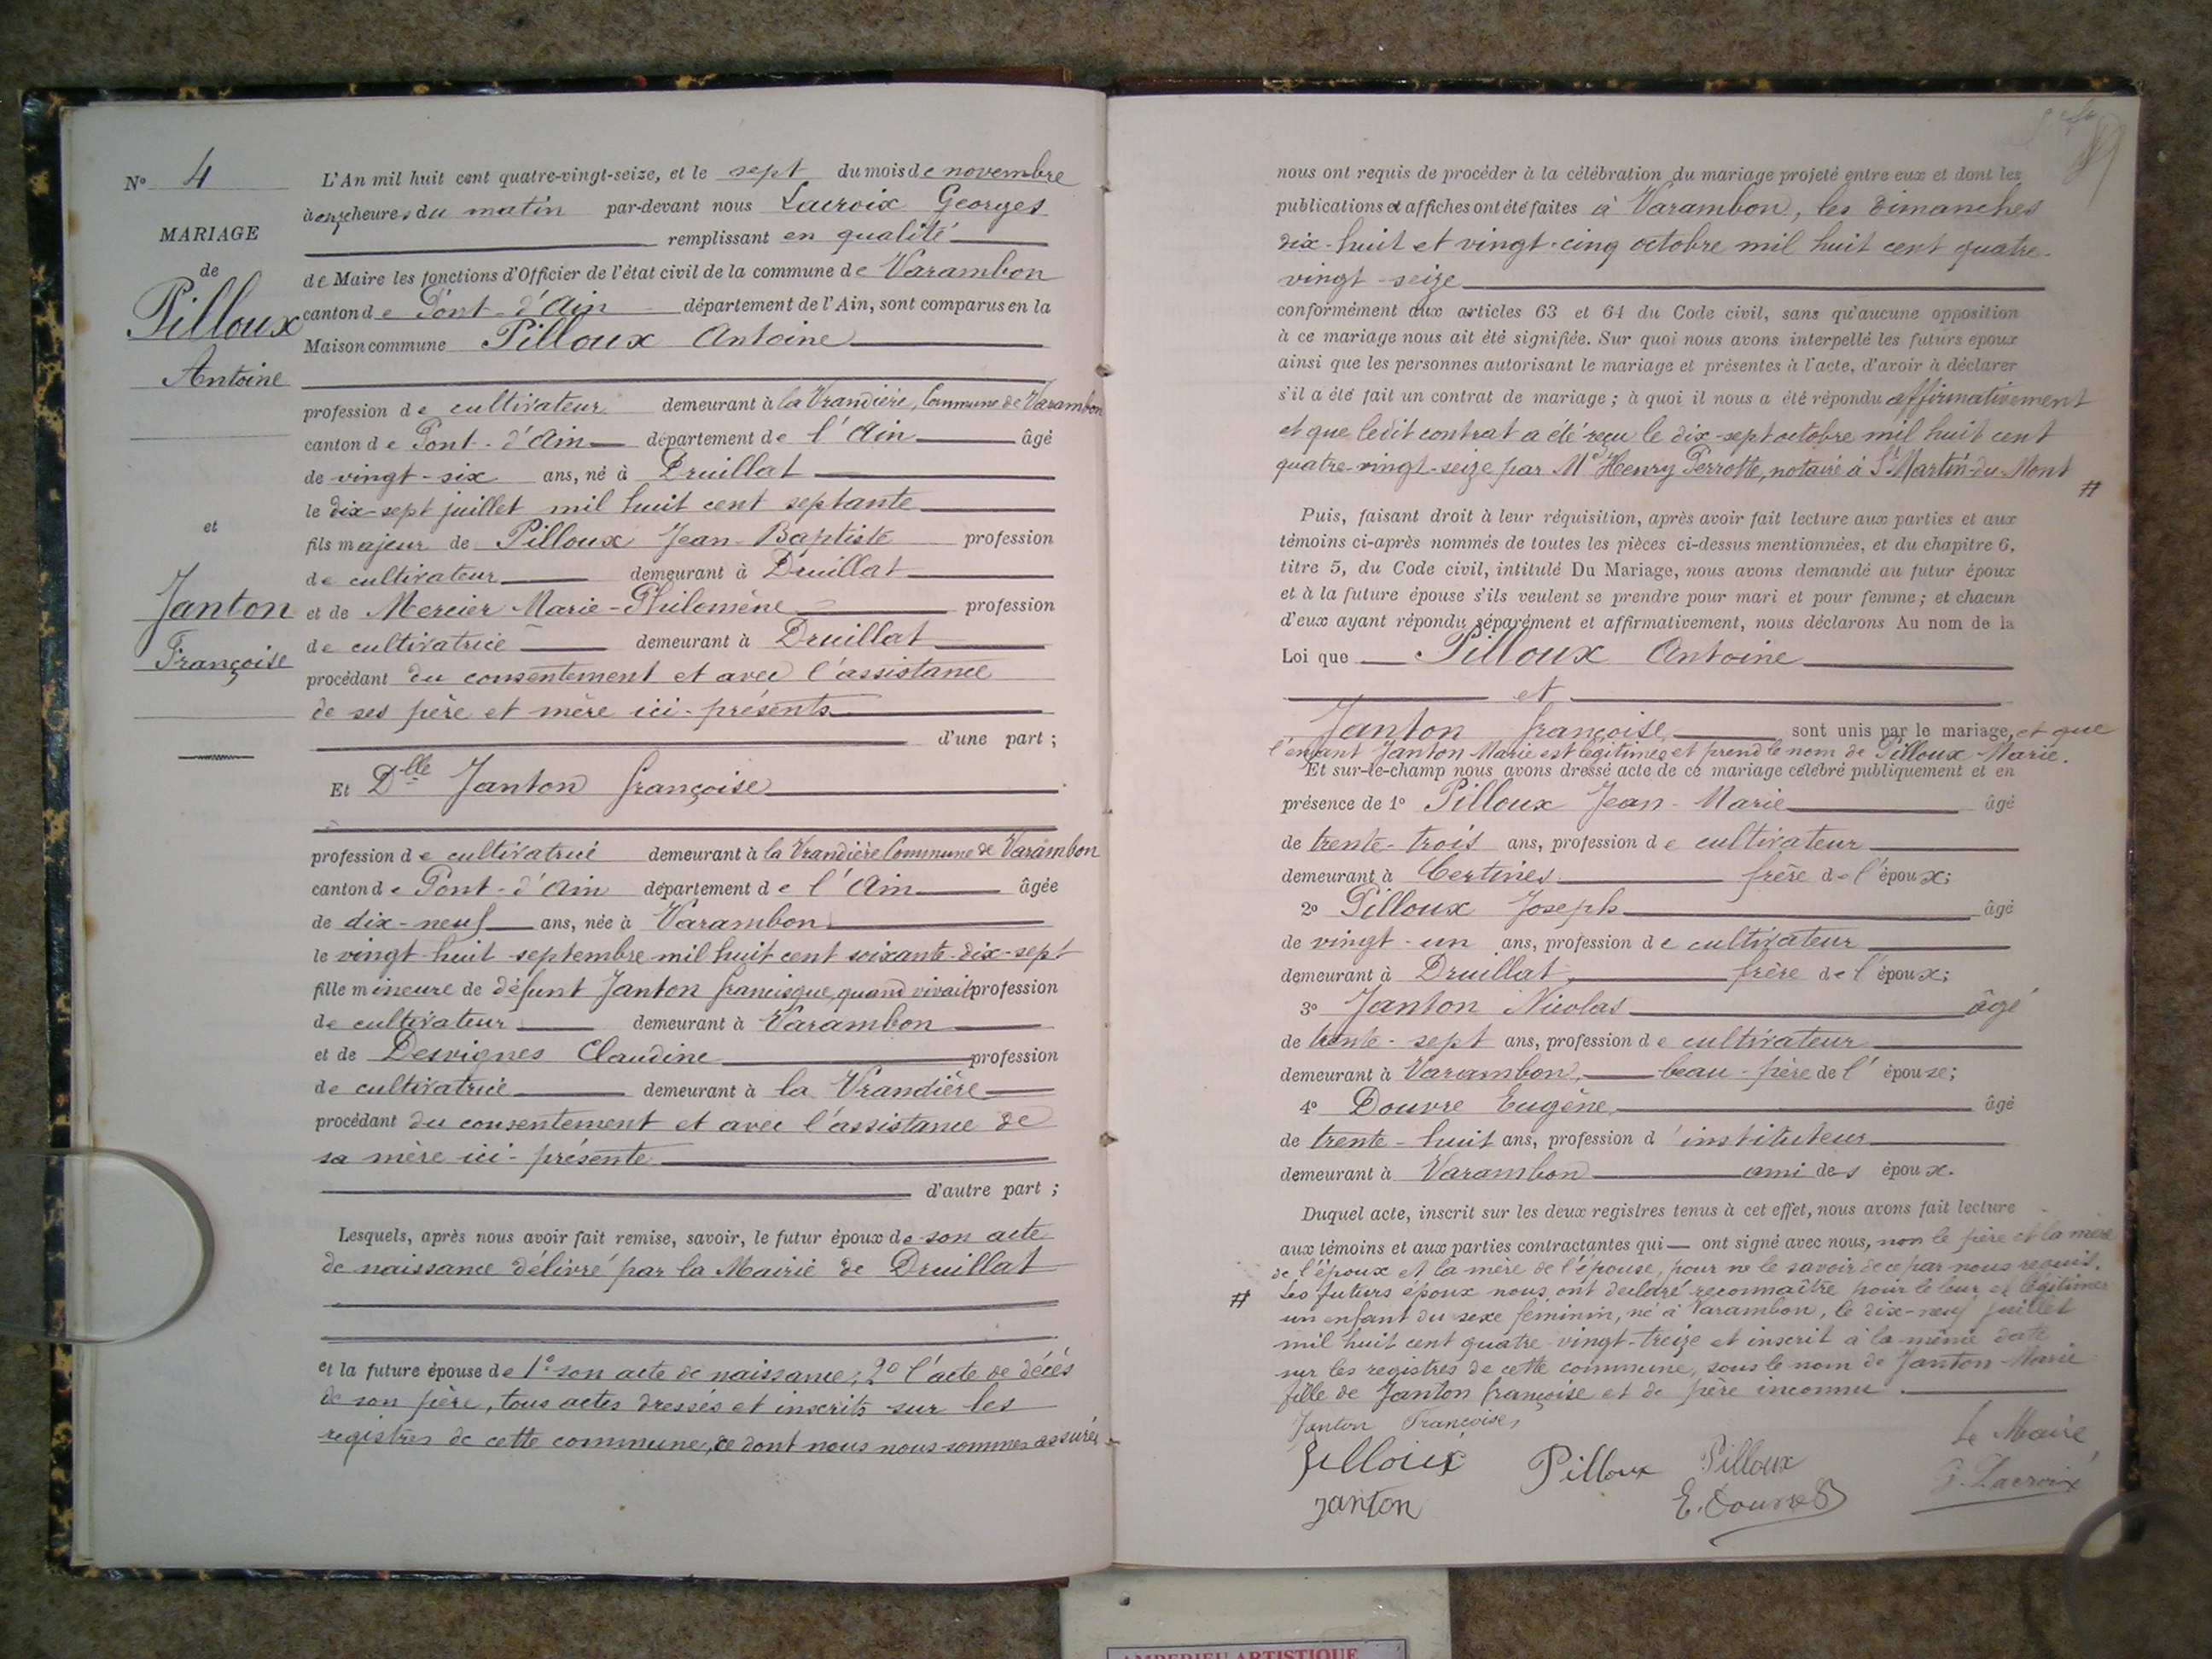 N° 4
MARIAGE
de
Pilloux
Antoine
et
Janton
Françoise
L'An mil huit cent quatre-vingt-seize, et le sept du mois de novembre
à onze heures du matin par-devant nous Lacroix Georges
remplissant en qualité
de Maire les fonctions d'Officier de l'état civil de la commune de Varambon
canton de Pont-d'Ain département de l'Ain, sont comparus en la
Maison commune Pilloux Antoine
profession de cultivateur demeurant à la Vrandière, Commune de Varambon
canton de Pont-d'Ain département de l'Ain âgé
de vingt-six ans, né à Druillat
le dix-sept juillet mil huit cent septante
fils majeur de Pilloux Jean-Baptiste profession
de cultivateur demeurant à Druillat
et de Mercier Marie-Philomène profession
de cultivatrice demeurant à Druillat
procédant du consentement et avec l'assistance
de ses père et mère ici-présents
d'une part ;
Et Dlle Janton françoise
profession de cultivatrice demeurant à la Vrandière Commune de Varambon
canton de Pont-d'Ain département de l'Ain âgée
de dix-neuf ans, née à Varambon
le vingt-huit septembre mil huit cent soixante-dix-sept
fille mineure de défunt Janton francisque, quand vivait profession
de cultivateur demeurant à Varambon
et de Desvignes Claudine profession
de cultivatrice demeurant à la Vrandière
procédant du consentement et avec l'assistance de
sa mère ici-présente
d'autre part ;
Lesquels, après nous avoir fait remise, savoir, le futur époux de son acte
de naissance délivré par la Mairie de Druillat
et la future épouse de 1° son acte de naissance; 2° l'acte de décès
de son père, tous actes dressés et inscrits sur les
registres de cette commune, ce dont nous nous sommes assurés
nous ont requis de procéder à la célébration du mariage projeté entre eux et dont les
publications et affiches ont été faites à Varambon, les dimanches
dix-huit et vingt-cinq octobre mil huit cent quatre-
vingt-seize
conformément aux articles 63 et 64 du Code civil, sans qu'aucune opposition
à ce mariage nous ait été signifiée. Sur quoi nous avons interpellé les futurs époux
ainsi que les personnes autorisant le mariage et présentes à l'acte, d'avoir à déclarer
s'il a été fait un contrat de mariage ; à quoi il nous a été répondu affirmativement
et que ledit contrat a été reçu le dix-sept octobre mil huit cent
quatre-vingt-seize par Me Henry Perrotte, notaire à St Martin-du-Mont #
Puis, faisant droit à leur réquisition, après avoir fait lecture aux parties et aux
témoins ci-après nommés de toutes les pièces ci-dessus mentionnées, et du chapitre 6,
titre 5, du Code civil, intitulé Du Mariage, nous avons demandé au futur époux
et à la future épouse s'ils veulent se prendre pour mari et pour femme ; et chacun
d'eux ayant répondu séparément et affirmativement, nous déclarons Au nom de la
Loi que Pilloux Antoine
et
Janton françoise, sont unis par le mariage, et que
l'enfant Janton Marie est légitimée et prend le nom de Pilloux Marie.
Et sur-le-champ nous avons dressé acte de ce mariage célébré publiquement et en
présence de 1° Pilloux Jean-Marie âgé
de trente-trois ans, profession de cultivateur
demeurant à Certines frère de l'époux;
2° Pilloux Joseph âgé
de vingt-un ans, profession de cultivateur
demeurant à Druillat frère de l'époux;
3° Janton Nicolas âgé
de trente-sept ans, profession de cultivateur
demeurant à Varambon, beau-père de l'épouse;
4° Douvre Eugène âgé
de trente-huit ans, profession d'instituteur
demeurant à Varambon ami des époux.
Duquel acte, inscrit sur les deux registres tenus à cet effet, nous avons fait lecture
aux témoins et aux parties contractantes qui ont signé avec nous, non le père et la mère
de l'époux et la mère de l'épouse, pour ne le savoir de ce par nous requis.
# Les futurs époux nous ont déclaré reconnaître pour le leur et légitimer
un enfant du sexe féminin, né à Varambon, le dix-neuf juillet
mil huit cent quatre-vingt-treize et inscrit à la même date
sur les registres de cette commune, sous le nom de Janton Marie
fille de Janton françoise et de père inconnu.
Janton Françoise,
Pilloux Pilloux Pilloux Le Maire,
Janton E. Douvre G. Lacroix
AMBERIEU ARTISTIQUE